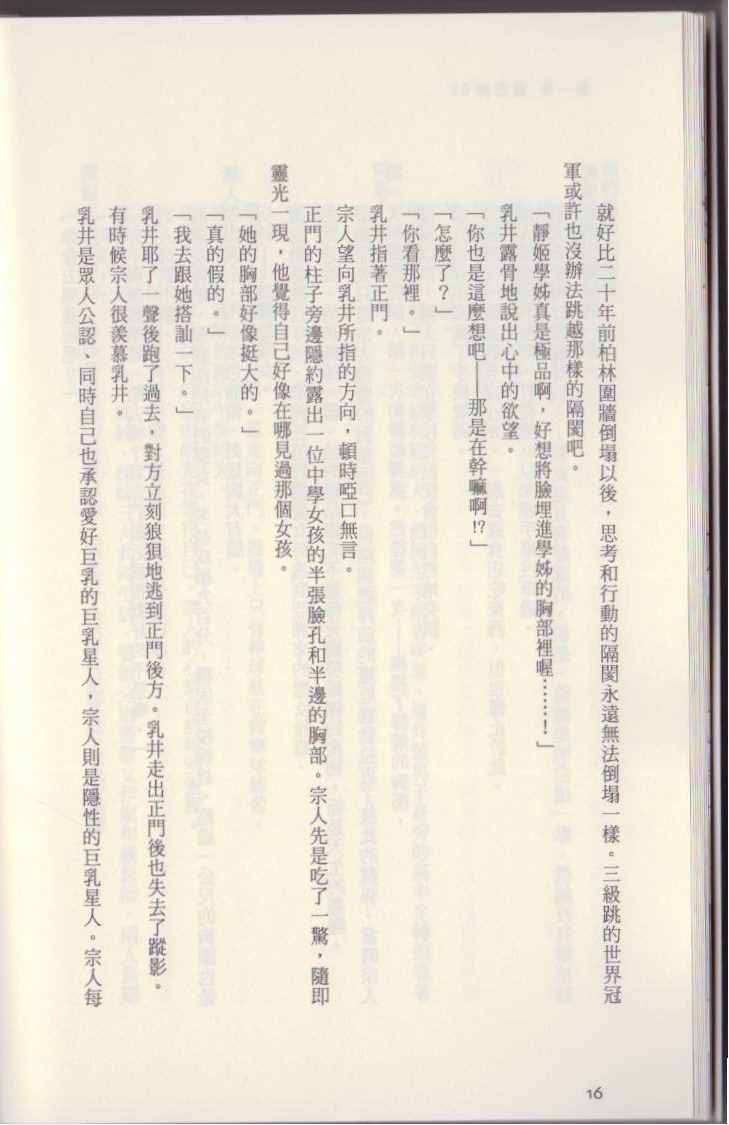 就好比二十年前柏林圍牆倒塌以後，思考和行動的隔閡永遠無法倒塌一樣。三級跳的世界冠
軍或許也沒辦法跳越那樣的隔閡吧。
「靜姬學姊真是極品啊，好想將臉埋進學姊的胸部裡喔……！」
乳井露骨地說出心中的欲望。
「你也是這麼想吧——那是在幹嘛啊!?」
「怎麼了？」
「你看那裡。」
乳井指著正門。
宗人望向乳井所指的方向，頓時啞口無言。
正門的柱子旁邊隱約露出一位中學女孩的半張臉孔和半邊的胸部。宗人先是吃了一驚，隨即
靈光一現，他覺得自己好像在哪見過那個女孩。
「她的胸部好像挺大的。」
「真的假的。」
「我去跟她搭訕一下。」
乳井耶了一聲後跑了過去，對方立刻狼狽地逃到正門後方。乳井走出正門後也失去了蹤影。
有時候宗人很羨慕乳井。
乳井是眾人公認、同時自己也承認愛好巨乳的巨乳星人，宗人則是隱性的巨乳星人。宗人每
16